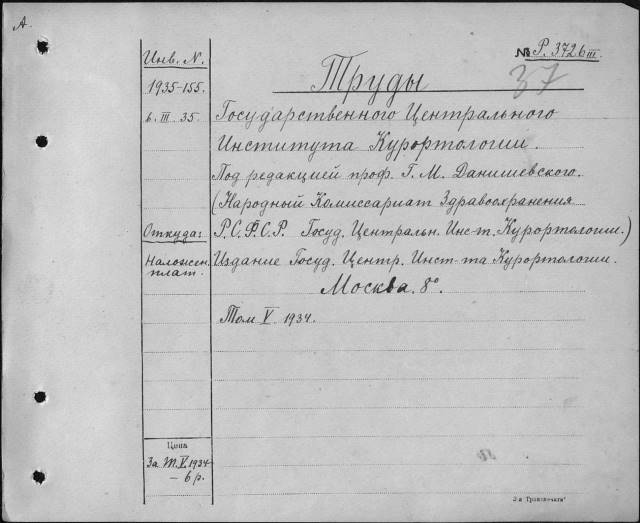 А.
Инв. N.
№ Р. 3726 III.
37
Труды
1935-155.
6. III. 35.
Государственного Центрального
Института Курортологии.
Под редакцией проф. Г. М. Данишевского.
(Народный Комиссариат Здравоохранения
Откуда:
Р.С.Ф.С.Р. Госуд. Центральн. Инс-т. Курортологии.)
Наложен.
плат.
Издание Госуд. Центр. Инст-та Курортологии.
Москва. 8°.
Том V. 1934.
Цена
За Т. V. 1934
- 6 р.